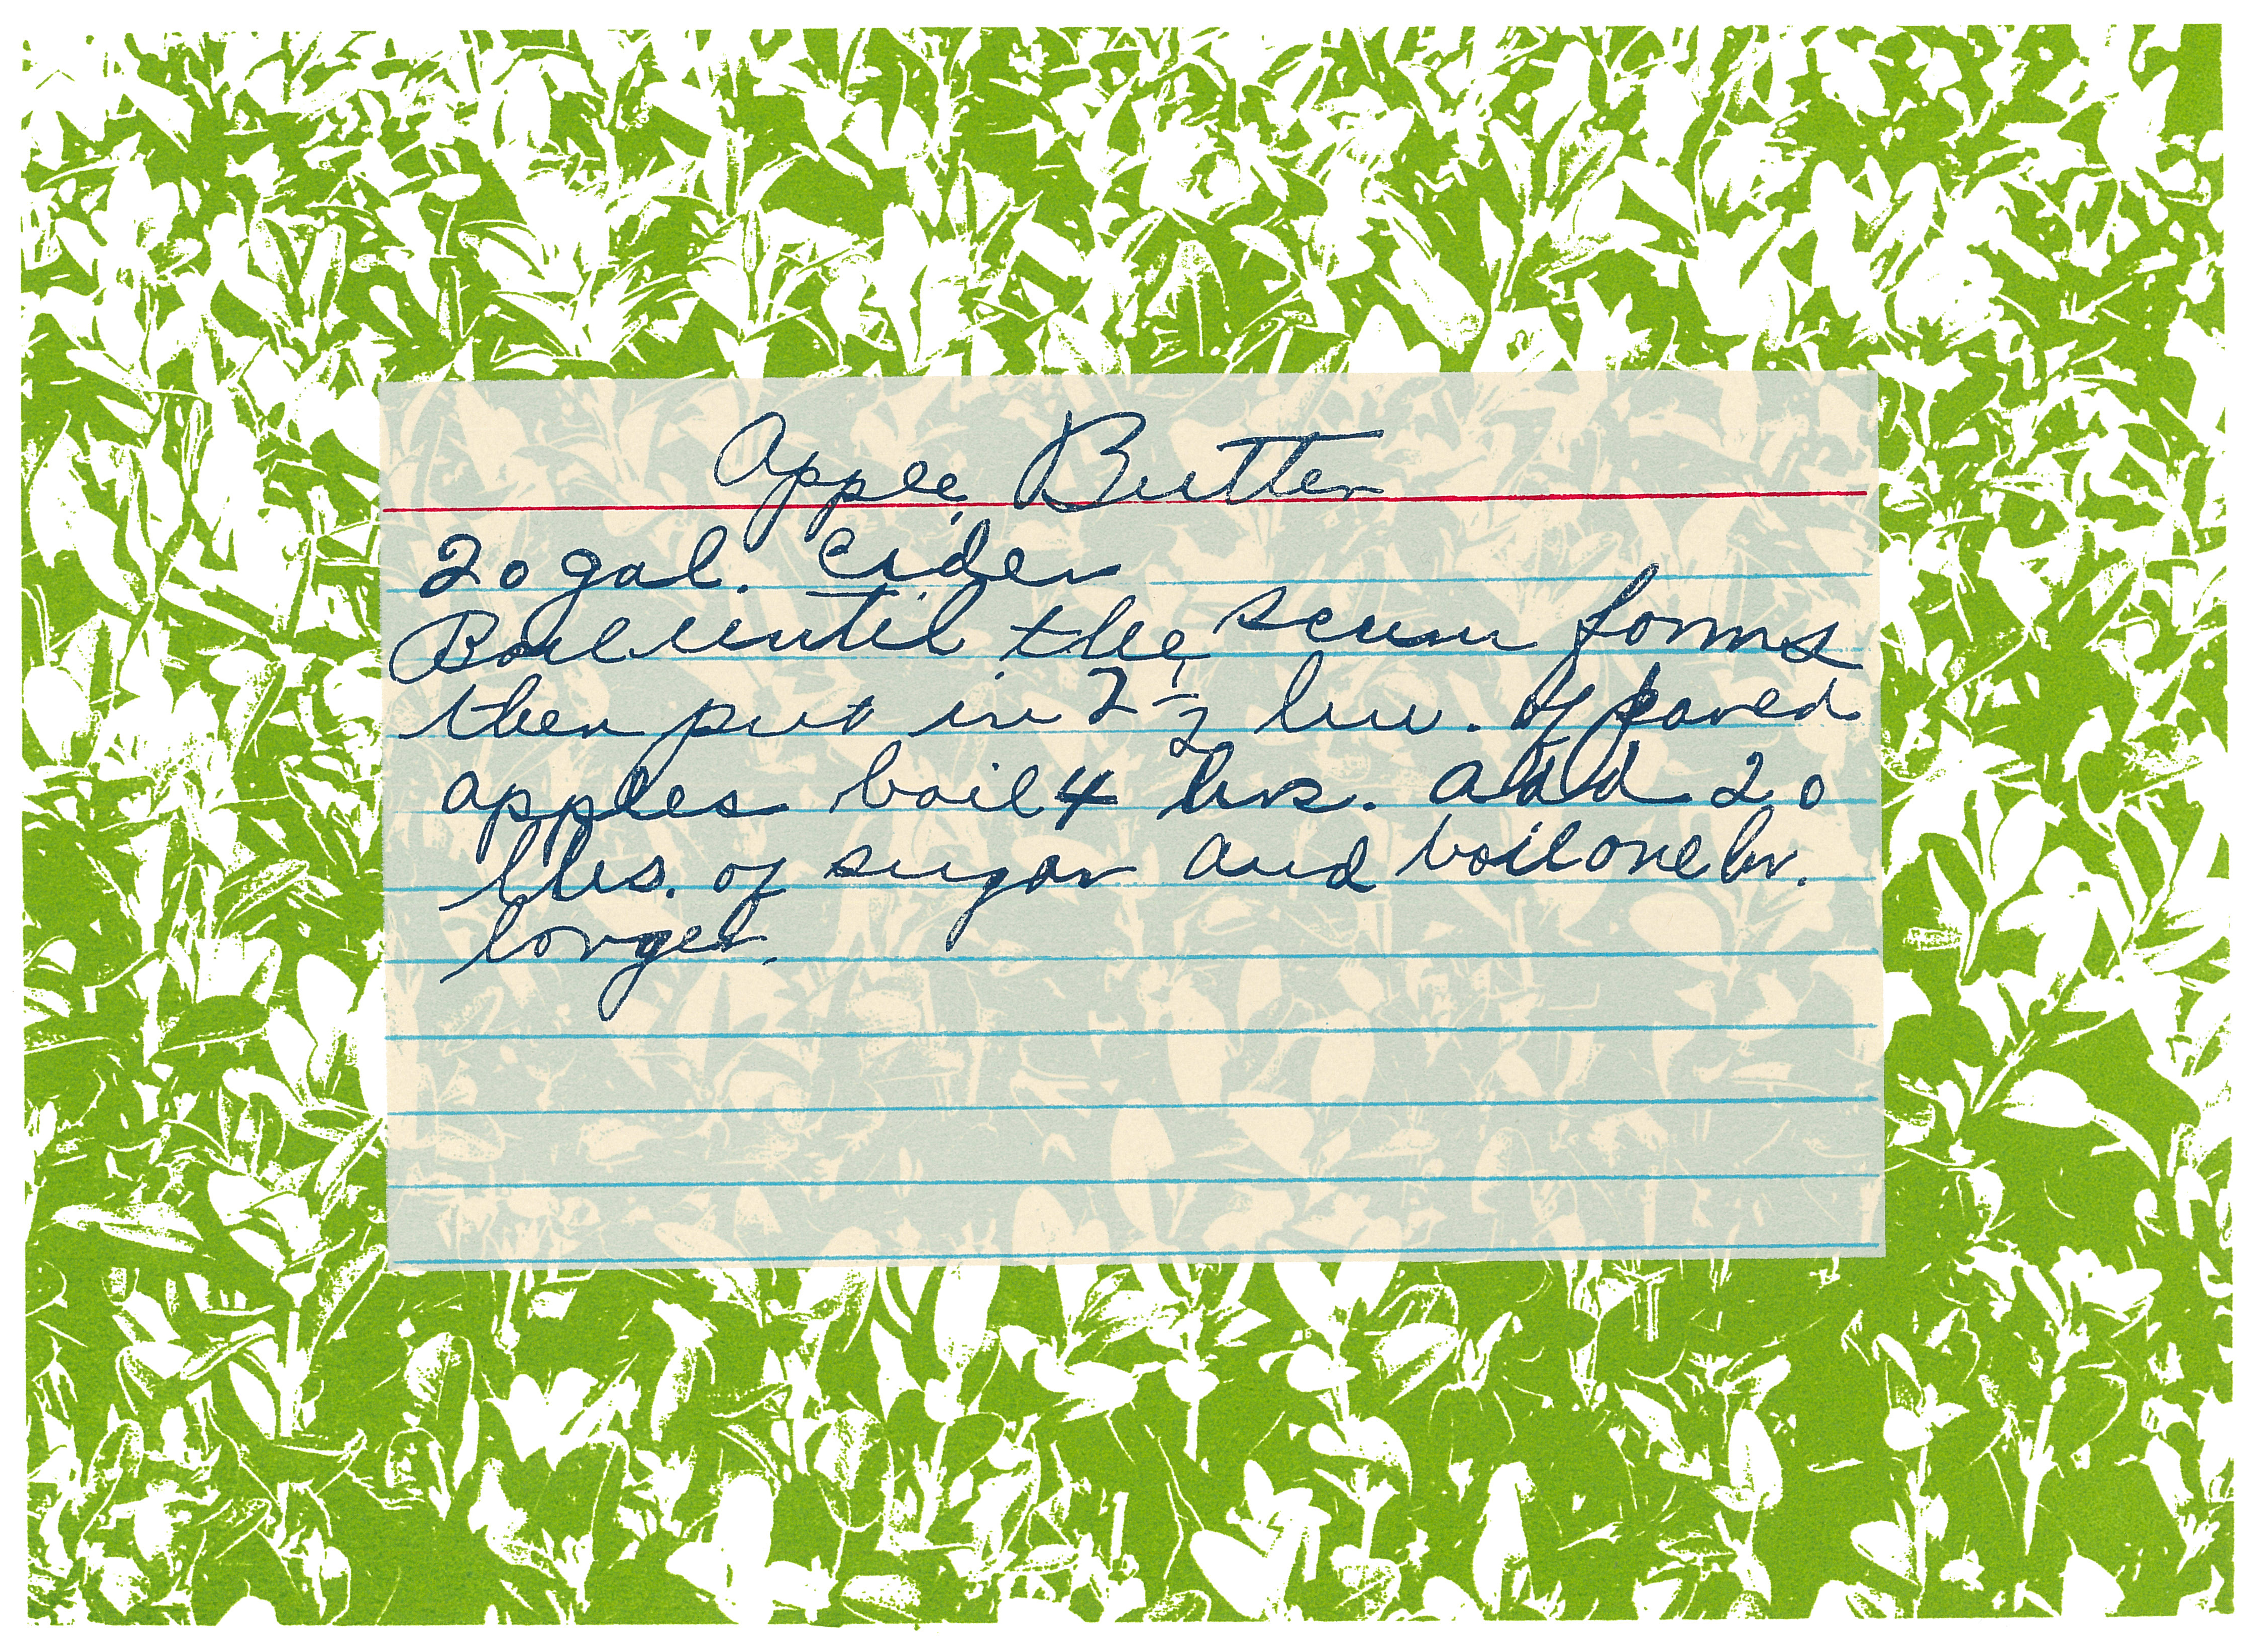 Apple Butter
20 gal. Cider
Boil until the scum forms
then put in 2 1/2 bu. of pared
apples boil 4 hrs. add 20
lbs. of sugar and boil one hr.
longer.